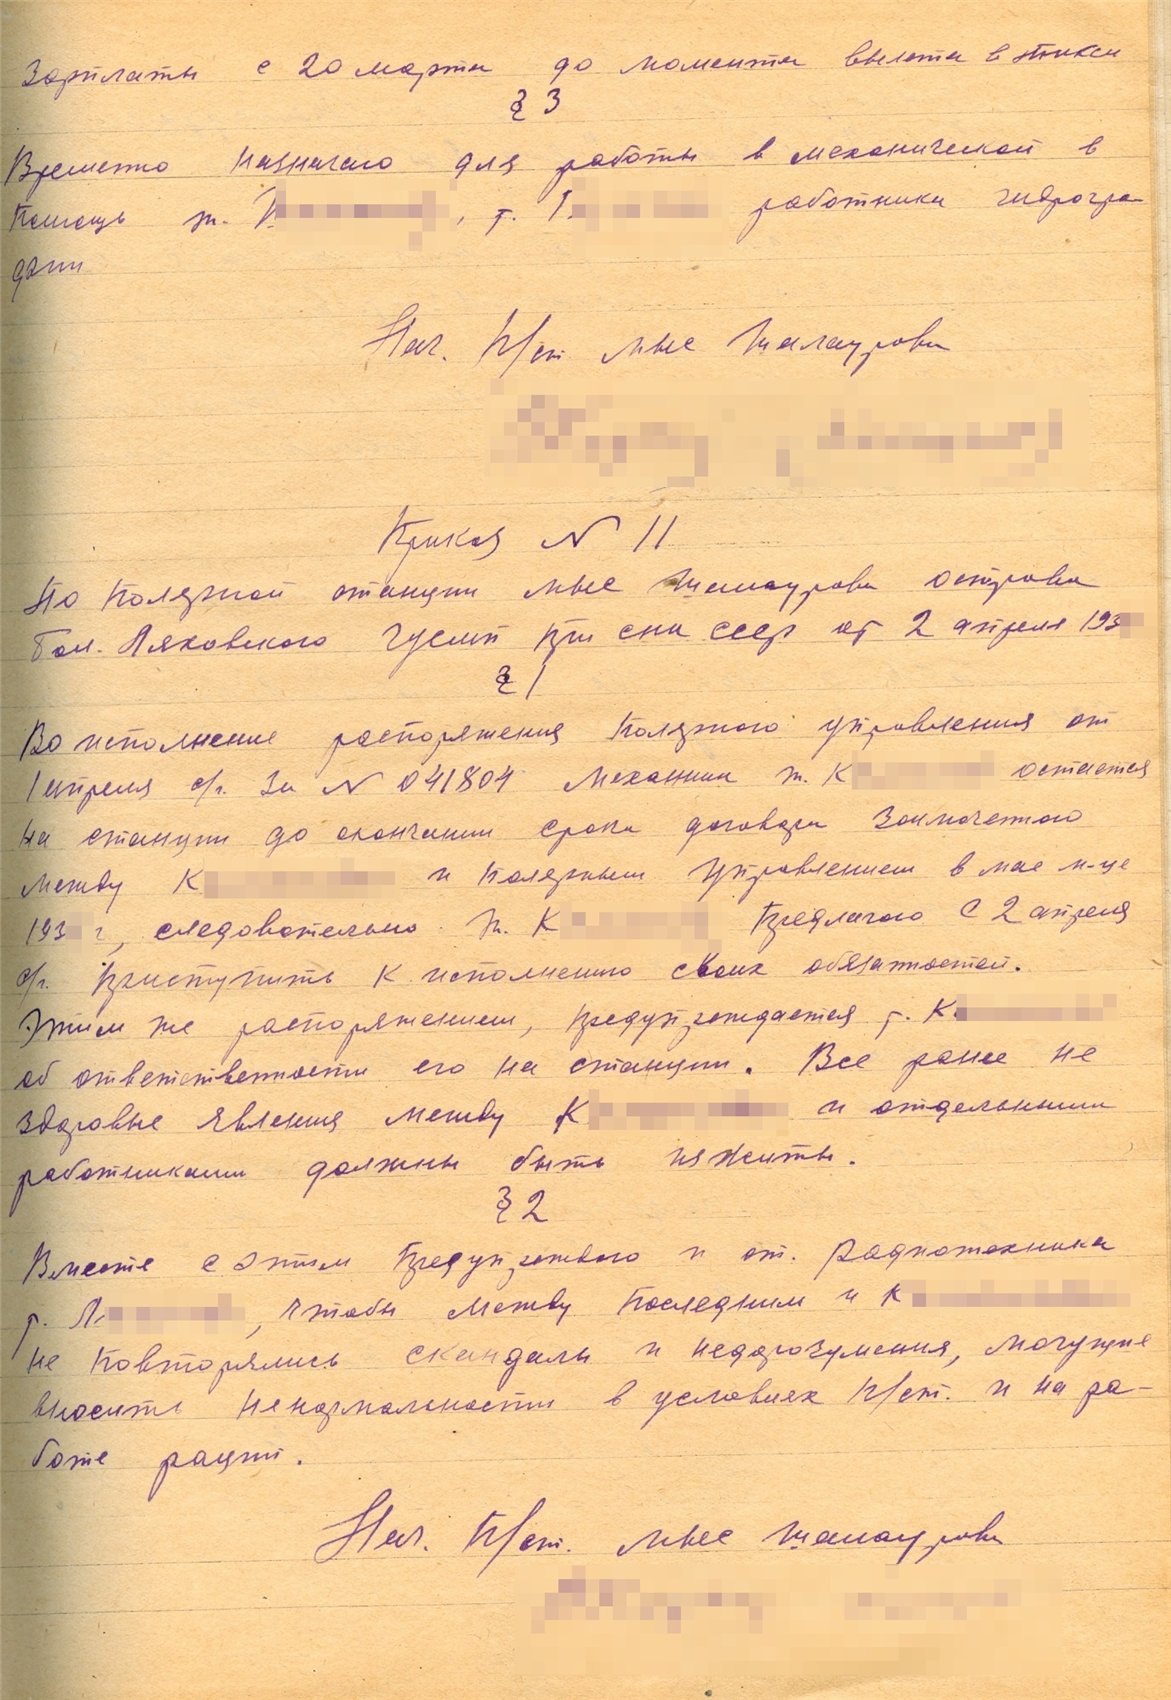 Зарплаты с 20 марта до момента вылета в Тикси
§ 3
Временно назначаю для работы в механической в
помощь т. К , т. Г работника гидрогра-
фии
Нач. п/ст мыс Шалаурова
Приказ N 11
По полярной станции мыс Шалаурова острова
Бол. Ляховского ГУСМП при СНК СССР от 2 апреля 193
§ 1
Во исполнение распоряжения Полярного Управления от
1 апреля с/г. за N 041804 механик т. К остается
на станции до окончании срока договора заключенного
между К и Полярным Управлением в мае м-це
193 г, следовательно т. К предлагаю с 2 апреля
с/г. приступить к исполнению своих обязанностей.
Этим же распоряжением, предупреждается т. К
об ответственности его на станции. Все ранее не
здоровые явления между К и отдельными
работниками должны быть изжиты.
§ 2
Вместе с этим предупреждаю и ст. радиотехника
т. Л , чтобы между последним и К
не повторялись скандалы и недоразумения, могущие
вносить ненормальности в условиях п/ст. и на ра-
боте рации.
Нач. п/ст. мыс Шалаурова